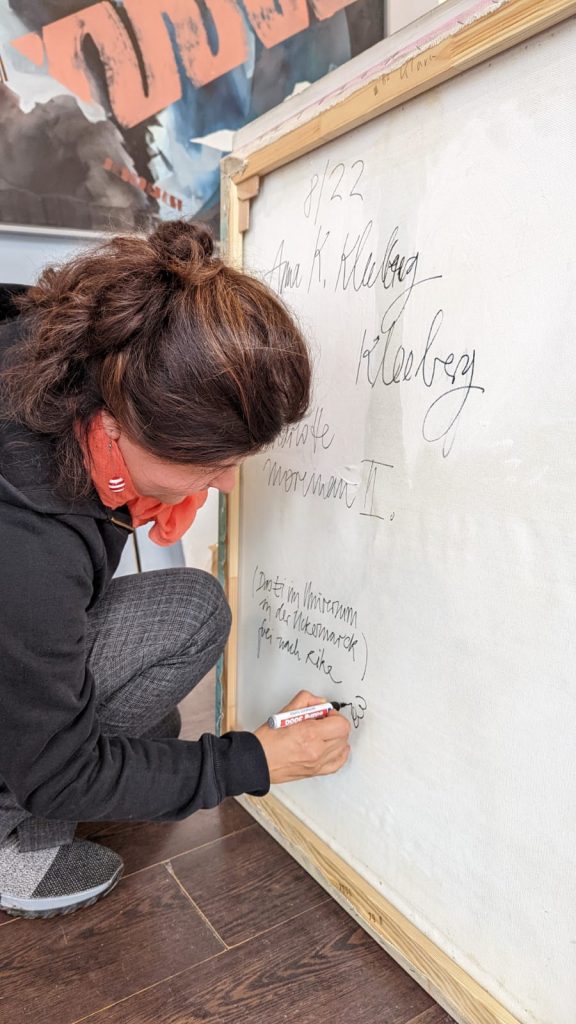 8/22
Ana K. Kleeberg
Kleeberg
moorman II.
(Das Ei im Universum
in der Uckermarck
frei nach Rike)
edding 3000